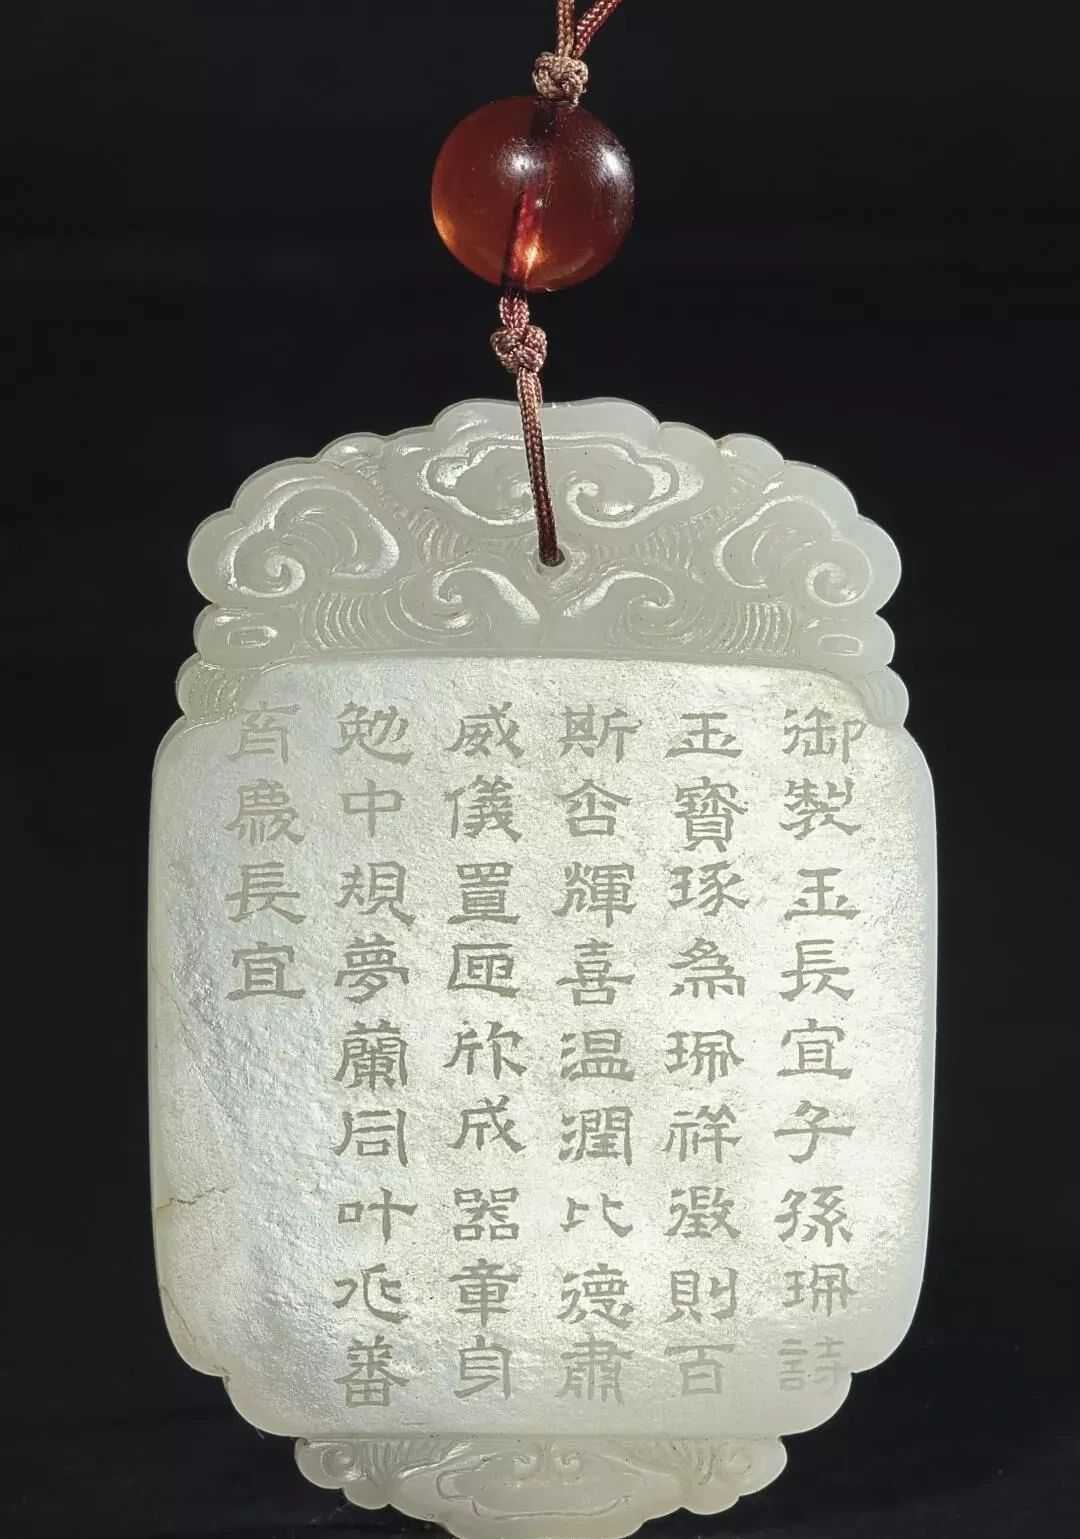 御製玉長宜子孫珮詩
玉寶琢為珮祥徵則百
斯含輝喜温潤比德肅
威儀置匣欣成器章身
勉中規夢蘭同叶兆蕃
育慶長宜